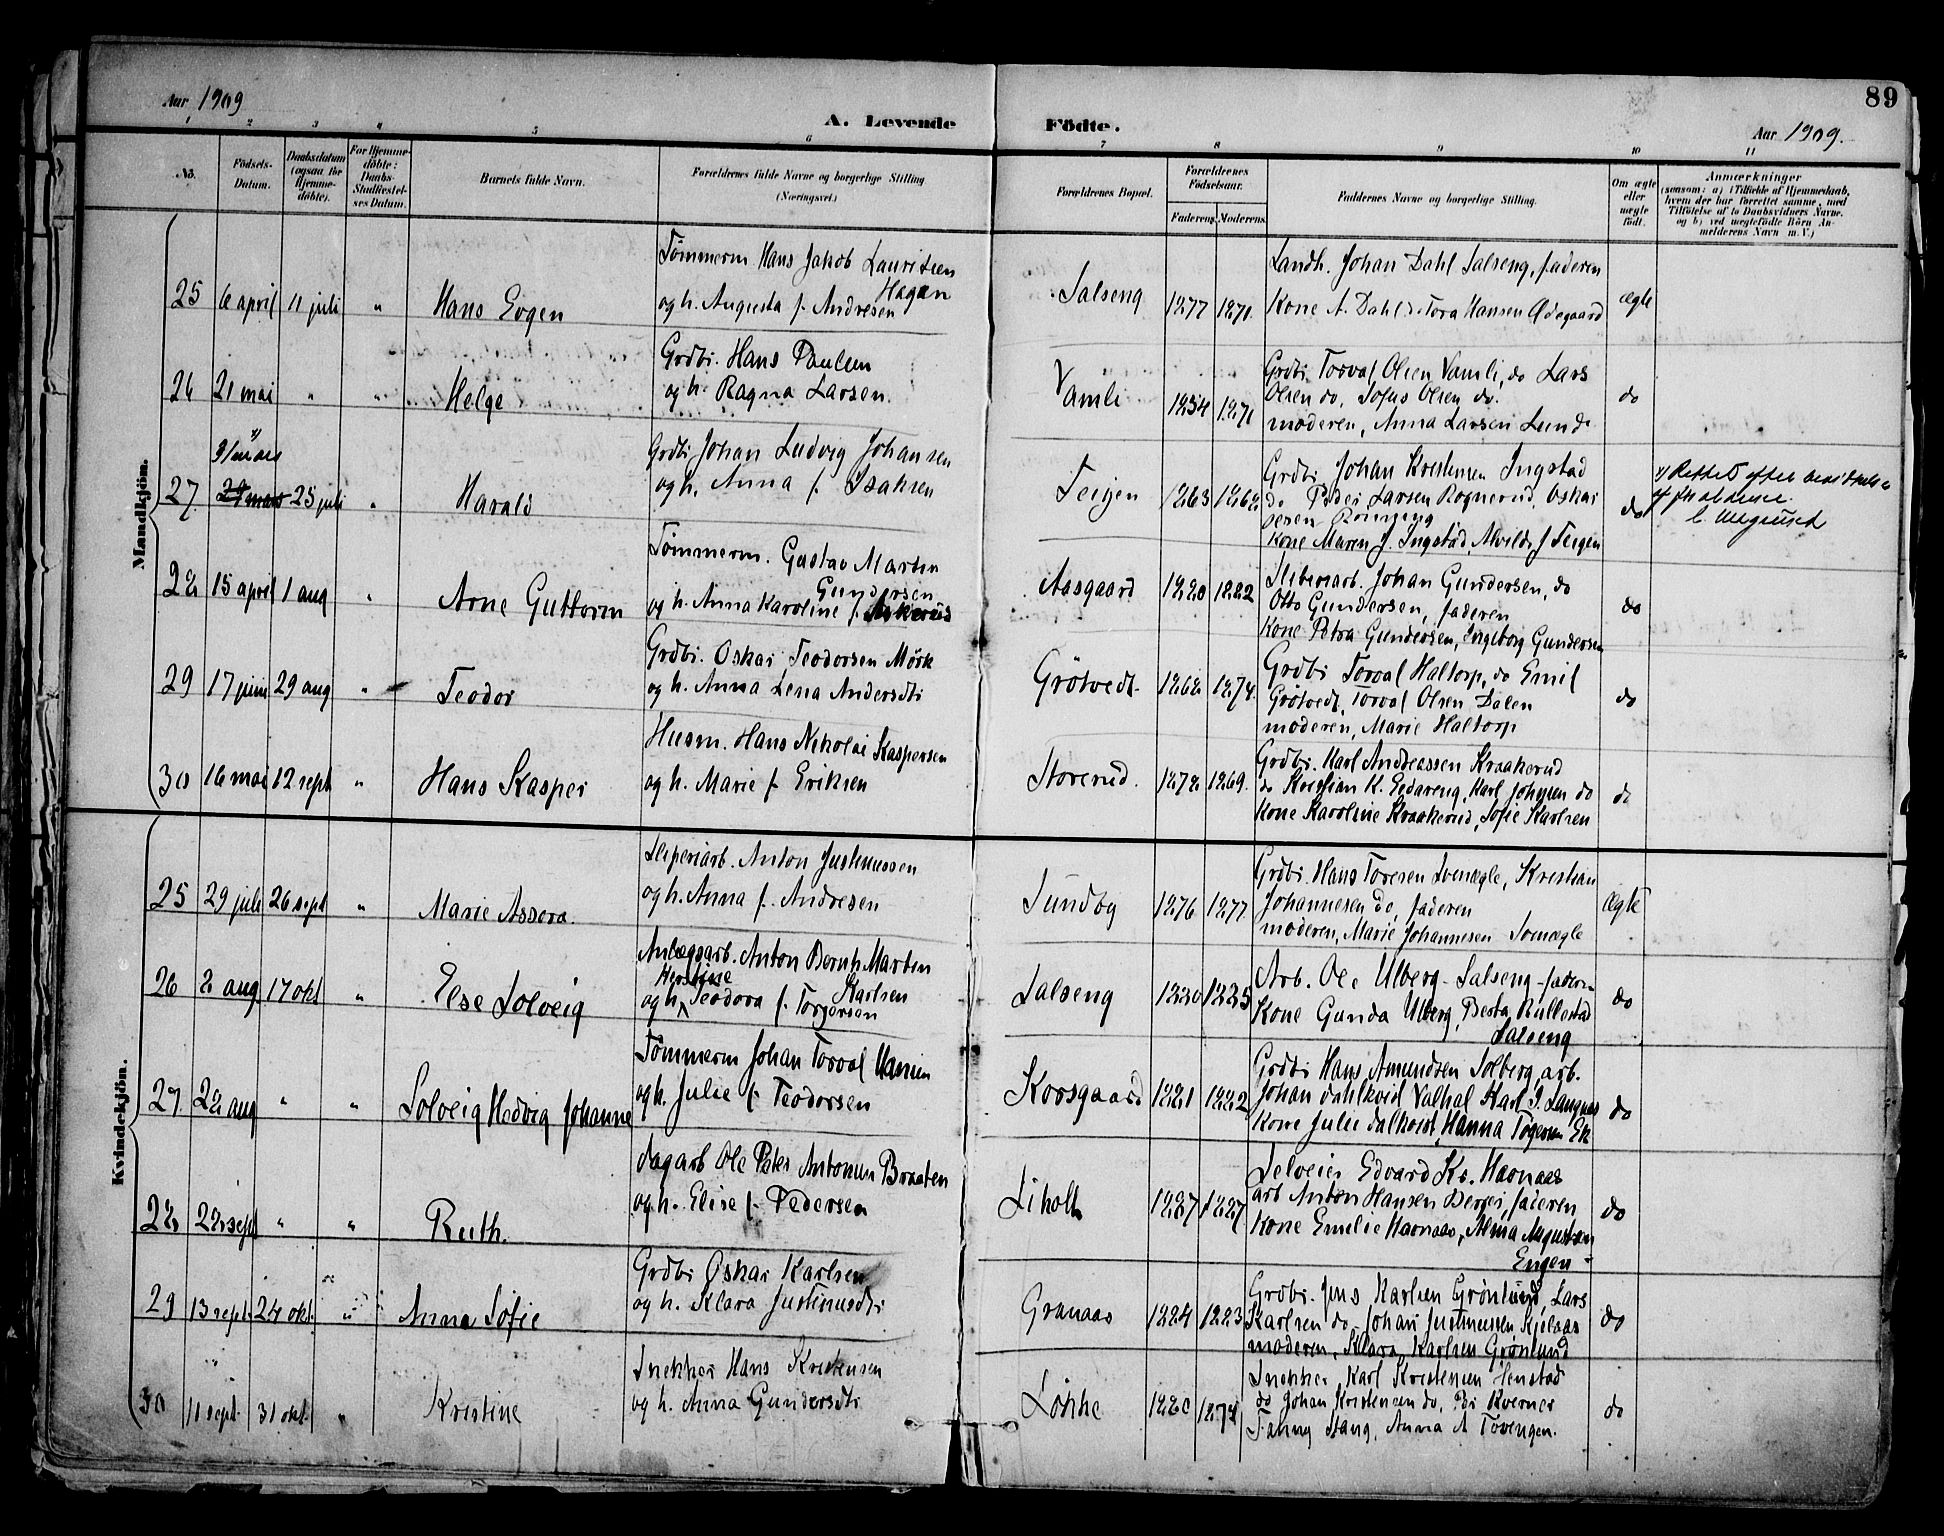 Aar 1909
A. Levende Födte.
Aar 1909.
89
1 2 3 4 5 6 7 8 9 10 11
No.
Födsels-
Datum.
Daabsdatum
(ogsaa for
Hjemme-
döbte).
For Hjemme-
döbte:
Daabs-
Stadfæstel-
ses Datum.
Barnets fulde Navn.
Forældrenes fulde Navne og borgerlige Stilling
(Næringsvei.)
Forældrenes Bopæl.
Forældrenes
Födselsaar.
Faderens. Moderens.
Faddernes Navne og borgerlige Stilling.
Om ægte
eller
uægte
födt.
Anmærkninger
(saasom: a) i Tilfælde af Hjemmedaab,
hvem der har forrettet samme, med
Tilföielse af to Daabsvidners Navne,
og b) ved uægtefödte Börn An-
melderens Navn m. V.)
Mandkjön.
25 6 april 11 juli " Hans Evgen
Tömmerm Hans Jakob Lauritsen
Hagen
og h. Augusta f. Andresen
Salseng 1877 1871.
Landh. Johan Dahl Salseng, faderen
Kone A. Dahl do Tora Hansen Ødegaard
ægte
26 21 mai " " Helge
Grdbr. Hans Paulsen
og h. Ragna Larsen.
Vamli 1854 1871
Grdbr. Torval Olsen Vamli, do Lars
Olsen do, Sofus Olsen do.
moderen, Anna Larsen Lunde
do
27 31/mars 29 mars 25 juli " Harald
Grdbr Johan Ludvig Johansen
og h. Anna f. Isaksen
Teigen 1863 1868
Grdbr Johan Kristensen Ingstad
do Peder Larsen Rognerud, Oskar
Kone Maren J. Ingstad, Alvilde J Teigen
do
1) Rettet efter
28 15 april 1 aug " Arne Guttorm
Tömmerm. Gustav Martin
Gundersen
og h. Anna Karoline f.
Aasgaard 1880 1882
Sliberiarb. Johan Gundersen, do
Otto Gundersen, faderen
Kone Petra Gundersen, Ingeborg Gundersen
do
29 17 juni 29 aug " Teodor
Grdbr. Oskar Teodorsen Mörk
og h. Anna Lena Andersdtr
Grötvedt. 1868 1874.
Grdbr Torval Haltorp, do Emil
Grötvedt, Torval Olsen Dalen
moderen, Marie Haltorp
do
30 16 mai 12 sept " Hans Kasper
Husm. Hans Nikolai Kaspersen
og h. Marie f. Eriksen
Storerud. 1878 1869.
Grdbr. Karl Andreassen Kraakerud
do Kristian K. Eedareng, Karl Johnsen do
Kone Karoline Kraakerud, Sofie Karlsen
do
Kvindekjön.
25 29 juli 26 sept " Marie Assora.
Sliperiarb. Anton Justnussen
og h. Anna f. Andresen
Sundby 1876 1877
Grdbr. Hans Toresen Svenægle, Kristian
Johannesen do, faderen
moderen, Marie Johannesen Svenægle
Ægte
26 8 aug 17 okt " Else Solveig
Anlægsarb. Anton Bernh. Martin
Karlsen
og h. Teodora f. Torgersen
Salseng 1880 1885
Arb. Ole Ulberg Salseng - faderen
Kone Gunda Ulberg, Berta Bullestad
Salseng
do
27 22 aug " " Solveig Hedvig Johanne
Tömmerm Johan Torval Hansen
og h. Julie f. Teodorsen
Korsgaard 1881 1882
Grdbr Hans Amundsen Solberg, arb.
Johan Dahlkvist Valhal Karl J. Langnes
Kone Julie Dalkvist, Hanna Togersen Ek
do
28 28 sept " " Ruth.
Dagarb Ole Peter Antonsen Braaten
og h. Elise f. Pedersen
Liholt 1887 1887
Selveier Edvard Kr. Havnaas
arb Anton Hansen Berger, faderen
Kone Emilie Havnaas, Alma Augustsen
Engen -
do
29 13 sept. 24 okt. " Anna Sofie
Grdbr Oskar Karlsen
og h. Klara Justinusdtr
Granaas 1884 1883
Grdbr. Jens Karlsen Grönlund, Lars
Karlsen do, Johan Justnussen Kjelaas
moderen, Klara Karlsen Grönlund
do
30 11 sept. 31 okt. " Kristine
Snekker Hans Kristensen
og h. Anna Gundersdtr
Lökke 1880 1874
Snekker Karl Kristensen Henstad
do Johan Kristensen do, Per Kverner
Fanny Hang, Anna A Tovengen.
do